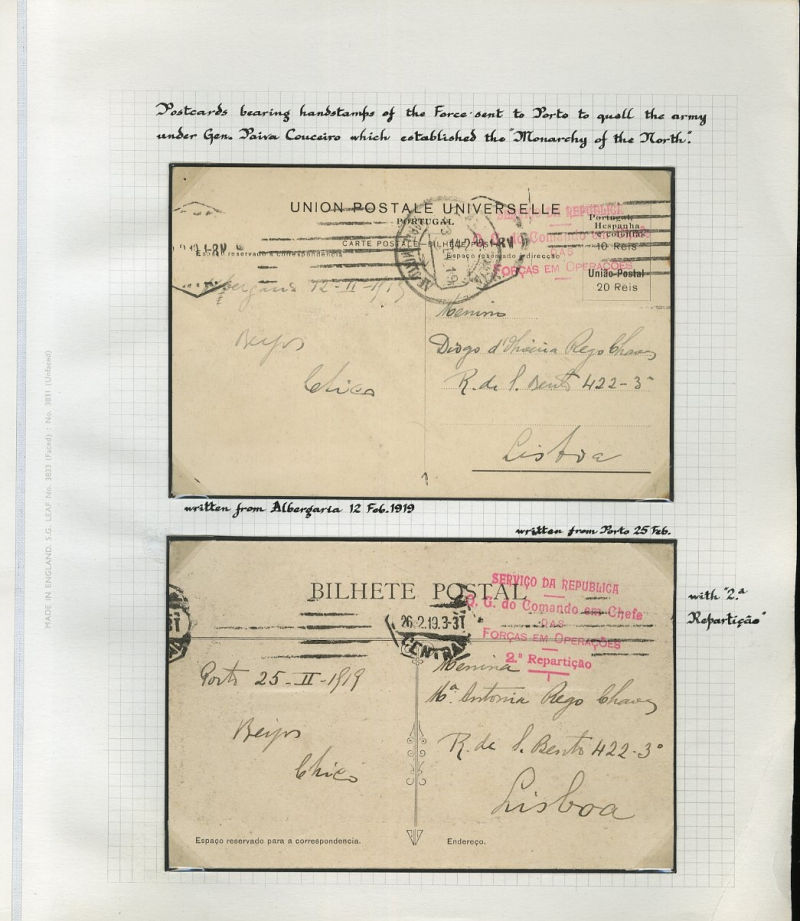 Postcards bearing handstamps of the Force sent to Porto to quell the army
under Gen. Paiva Couceiro which established the "Monarchy of the North".
UNION POSTALE UNIVERSELLE
PORTUGAL
CARTE POSTALE - BILHETE POSTAL
Espaço reservado a correspondencia
Espaço reservado a direcção
Portugal,
Hespanha
e colonias
10 Reis
União-Postal
20 Reis
SERVIÇO DA REPUBLICA
Q. G. do Comando em Chefe
DAS
FORÇAS EM OPERAÇÕES
Albergaria 12-II-1919
Beijos
Chico
Menino
Diogo d'Oliveira Rego Chaves
R. de S. Bento 422-3º
Lisboa
written from Albergaria 12 Feb. 1919
written from Porto 25 Feb.
with "2.ª
Repartição"
BILHETE POSTAL
SERVIÇO DA REPUBLICA
Q. G. do Comando em Chefe
DAS
FORÇAS EM OPERAÇÕES
2.ª Repartição
26.2.19.3-3T
CENTRAL
Porto 25-II-1919
Beijos
Chico
Menina
Mª Antonia Rego Chaves
R. de S. Bento 422-3º
Lisboa
Espaço reservado para a correspondencia.
Endereço.
MADE IN ENGLAND. S.G. LEAF No. 3833 (Faced) : No. 3831 (Unfaced)